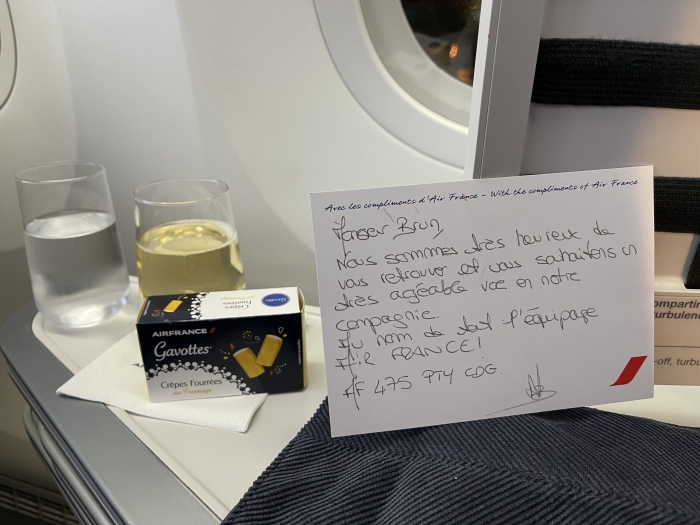 Avec les compliments d'Air France - With the compliments of Air France
Brun
Nous sommes très heureux de
vous retrouver et vous souhaitons un
très agréable vol en notre
compagnie.
Au nom de tout l'équipage
AIR FRANCE!
AF 475 PTY CDG.
AIRFRANCE
Gavottes
Crêpes Fourrées
au Fromage
Crêpes
Fourrées
au Fromage
Gavottes
ompartim
turbulenc
-off, turbu